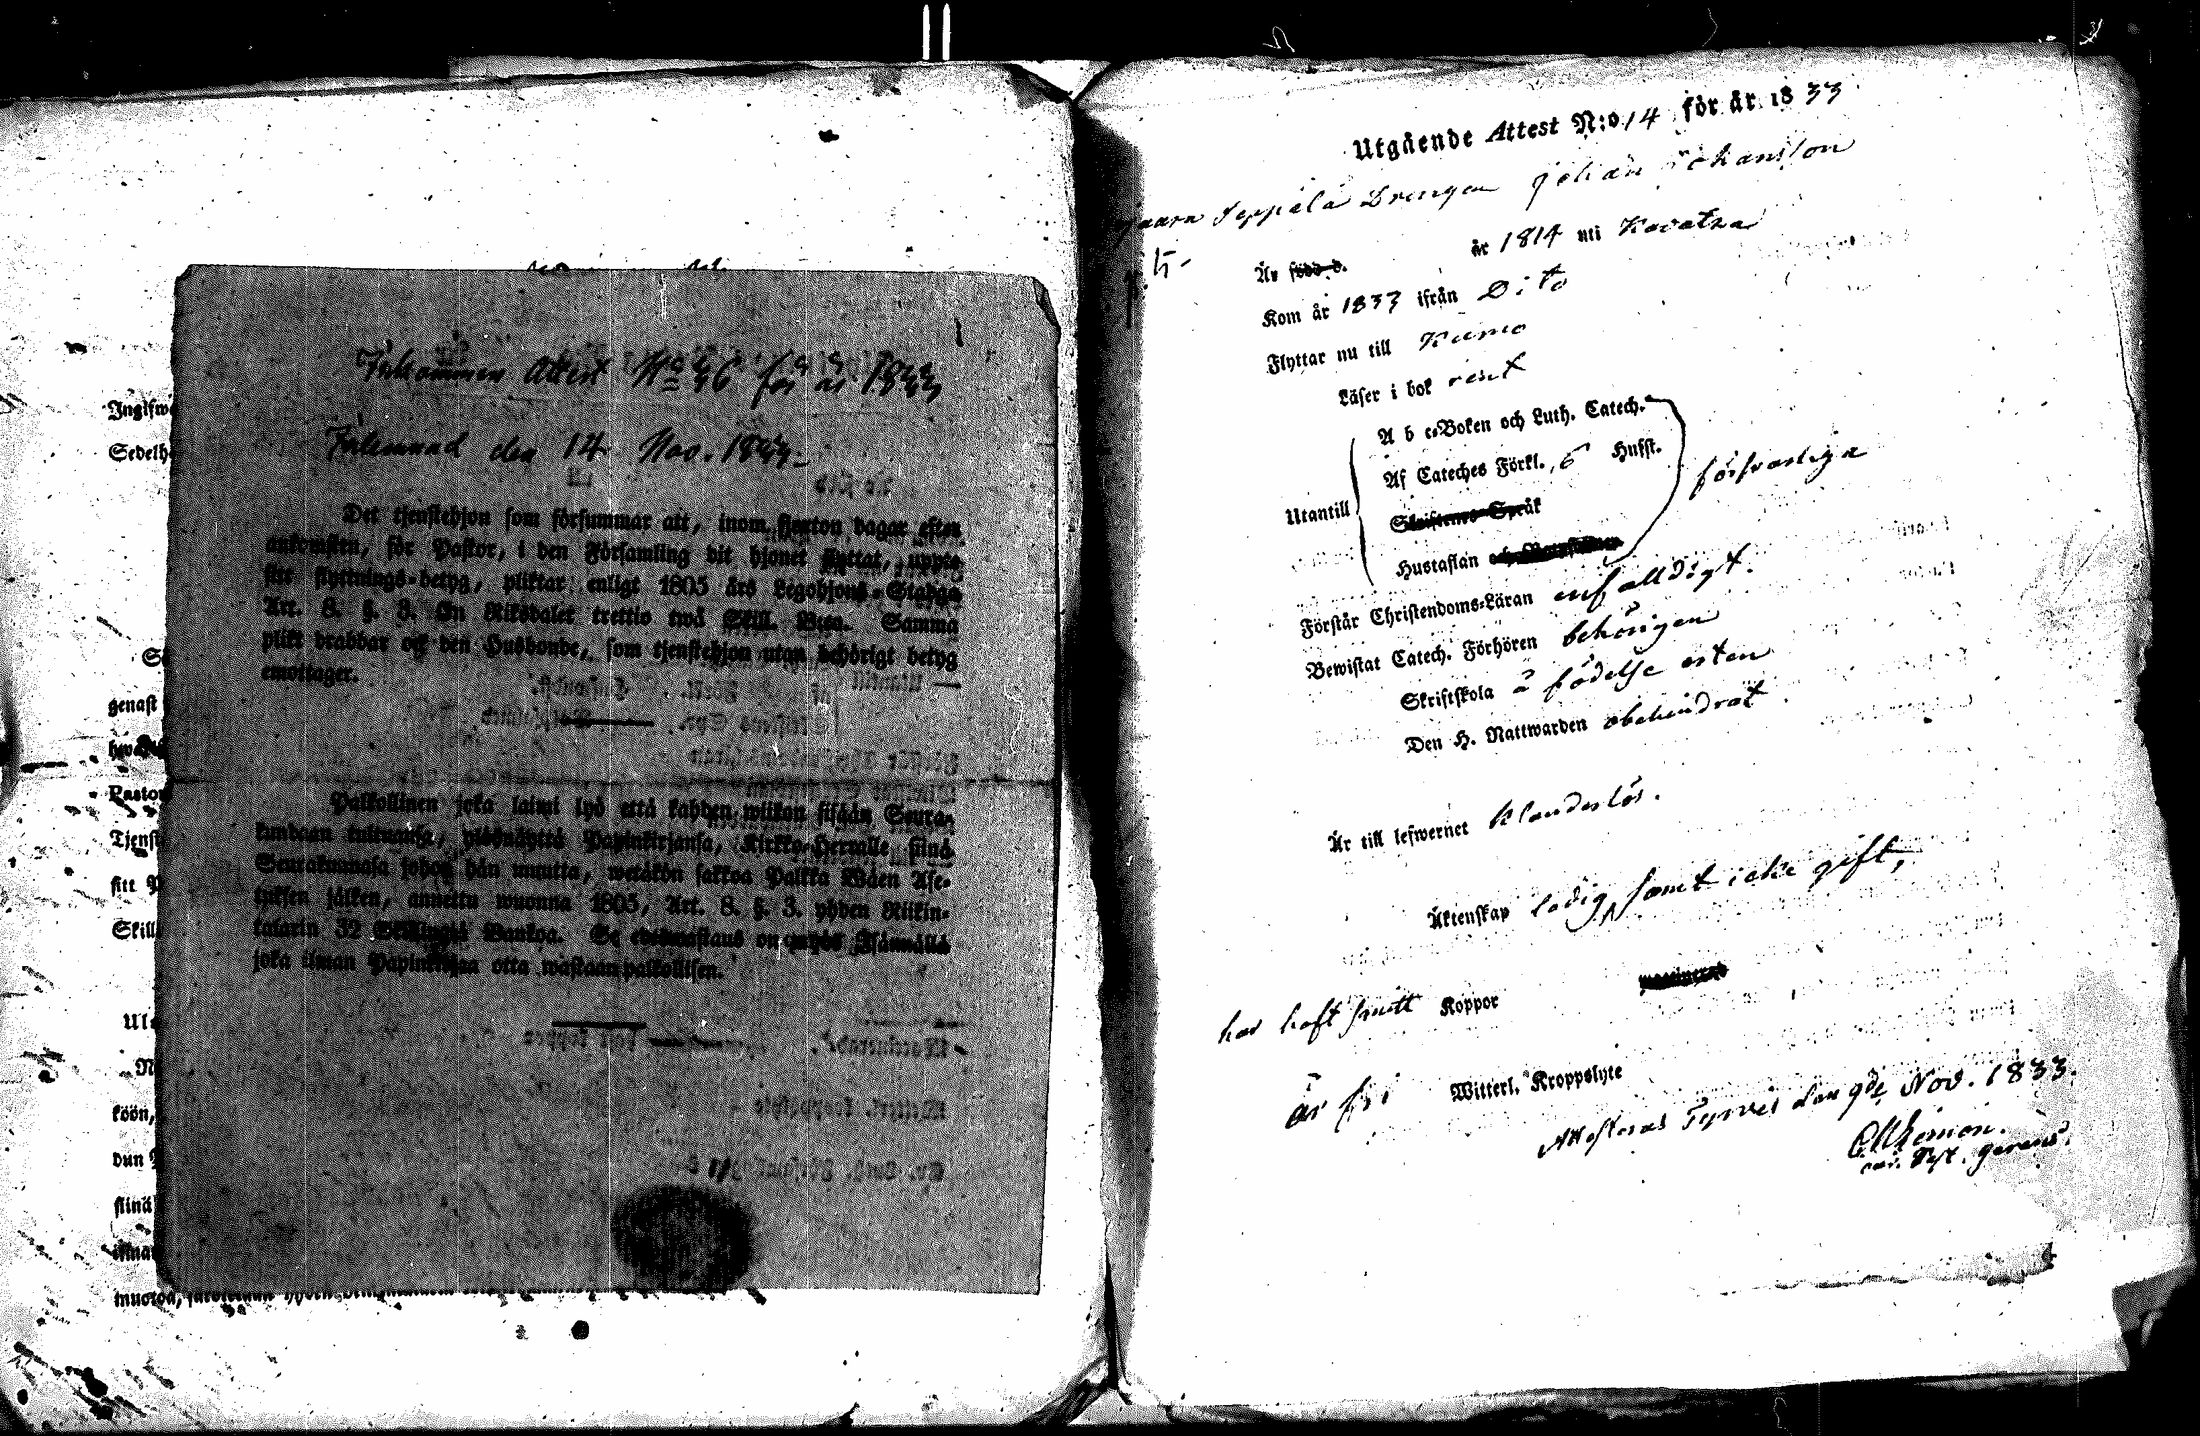 Inkommen Attest No 46 för år 1833
Inlemnad den 14 Nov. 1833
Det tjenstehjon som försummar att, inom fjorton dagar efter
ankomsten, för Pastor, i den Församling dit hjonet flyttat, uppte
sitt flyttnings-betyg, pliktar enligt 1805 års Legohjons-Stadga
Art. 8. §. 3. En Riksdaler trettio två Skill. Bco. Samma
plikt drabbar ock den Husbonde, som tjenstehjon utan behörigt betyg
emottager.
Palkollinen joka laimi lyö että kahden wiikon sisään Seura-
kundaan tultuansa, ylösnäyttä Papinkirjansa, Kirkko-Herralle siinä
Seurakunnasa johon hän muutta, wetäkön sakkoa Palkka Wäen Ase-
tuksen jälken, annettu wuonna 1805, Art. 8. §. 3. yhden Riikin-
talarin 32 Skillingiä Bankoa. Se edeswastaus on myös Isännällä
joka ilman Papinkirjaa otta wastaan palkollisen.
Ingifw
Sedelh
genast
Pastor
Tjenst
sitt
Skill
köön,
dun
siinä
Utgående Attest N:o 14 för år 1833
Seppälä Drengen Johan Johansson
Är född d. år 1814 uti Kovatza
Kom år 1833 ifrån Dito
Flyttar nu till Kumo
Läser i bok rent
A b c-Boken och Luth. Catech.
Af Cateches Förkl. 6 Hufst.
försvarliga
Utantill
Skriftenes Språk
Hustaflan
Förstår Christendoms-Läran enfalldigt.
Bewistat Catech. Förhören behörigen
Skriftskola å födelse orten
Den H. Nattwarden obehindrat
Är till lefwernet klanderlös.
Äktenskap ledig samt icke gift,
har haft smitt Koppor
är fri Witterl. Kroppslyte
Attesteras Tyrvis den 9de Nov. 1833.